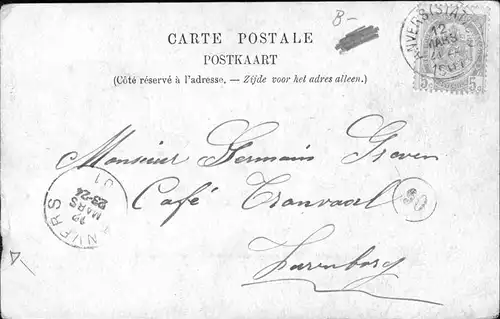 B-
CARTE POSTALE
POSTKAART
(Côté réservé à l'adresse. — Zijde voor het adres alleen.)
ANVERS (STAT
12
MARS
5 5
Monsieur Germain Greven
Café Transvaal
ANVERS
12
MARS
23-24
01